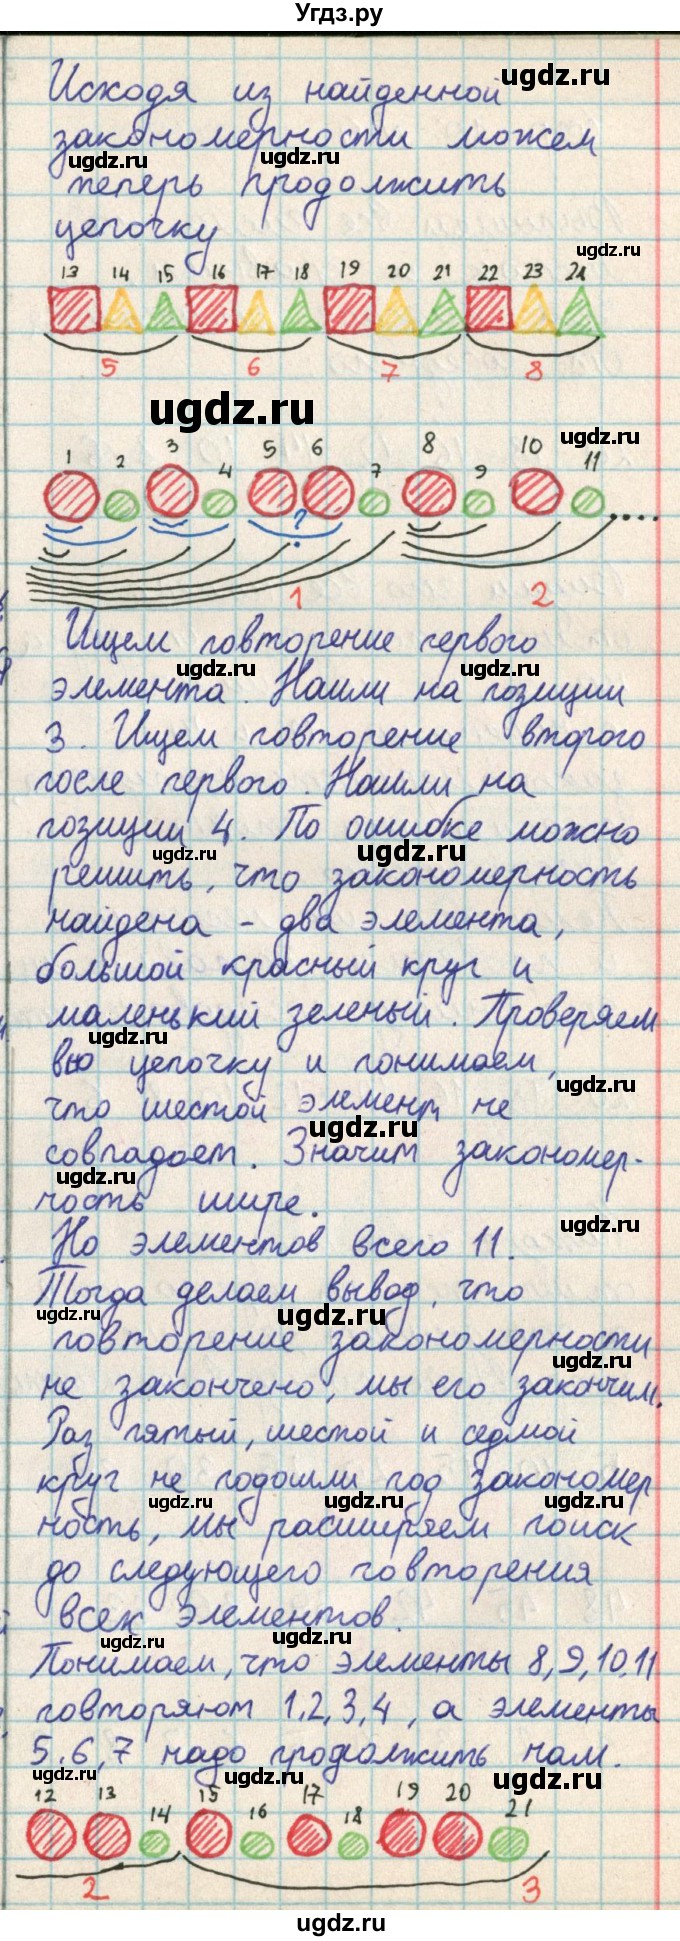 Угдз.ру
Исходя из найденной
ugdz.ru
закономерности можем
ugdz.ru ugdz.ru
теперь продолжить
цепочку
ugdz.ru
13 14 15 16 17 18 19 20 21 22 23 24
5 6 7 8
ugdz.ru
ugdz.ru
1 2 3 4 5 6 7 8 9 10 11
? ....
1 2
Ищем повторение первого
ugdz.ru ugdz.ru
элемента. Нашли на позиции
3. Ищем повторение второго
после первого. Нашли на
позиции 4. По ошибке можно
ugdz.ru ugdz.ru
решить, что закономерность
найдена - два элемента,
большой красный круг и
маленький зеленый. Проверяем
ugdz.ru
всю цепочку и понимаем,
ugdz.ru
что шестой элемент не
ugdz.ru
совпадает. Значит закономер-
ugdz.ru
ность шире.
ugdz.ru
Но элементов всего 11.
Тогда делаем вывод, что
ugdz.ru ugdz.ru
повторение закономерности
ugdz.ru
не закончено, мы его закончим.
Раз пятый, шестой и седмой
круг не подошли под закономер
ugdz.ru ugdz.ru ugdz.ru
ность, мы расширяем поиск
до следующего повторения
всех элементов.
ugdz.ru ugdz.ru
Понимаем, что элементы 8,9,10,11
повторяют 1,2,3,4, а элементы
5,6,7 надо продолжить нам.
ugdz.ru ugdz.ru ugdz.ru
12 13 14 15 16 17 18 19 20 21
2 3
ugdz.ru